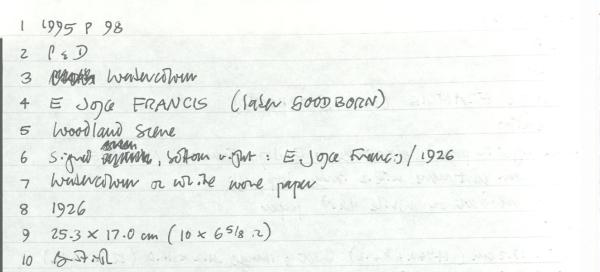 1 1995 P 98
2 P & D
3 Watercolour
4 E Joyce FRANCIS (later GOODBORN)
5 Woodland Scene
6 Signed, bottom right : E Joyce Francis / 1926
7 Watercolour on white wove paper
8 1926
9 25.3 x 17.0 cm (10 x 6 5/8 in)
10 British